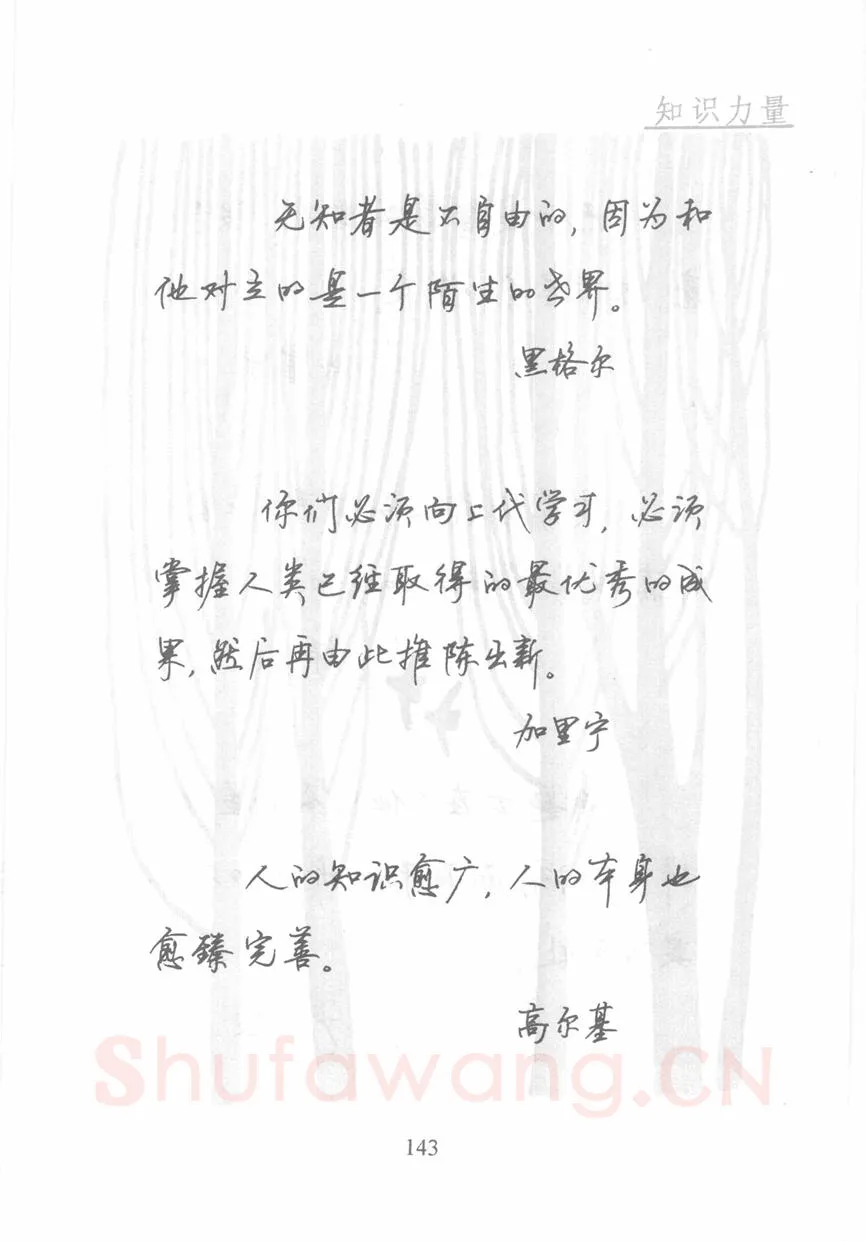 知识力量
无知者是不自由的,因为和
他对立的是一个陌生的世界。
黑格尔
你们必须向上代学习,必须
掌握人类已经取得的最优秀的成
果,然后再由此推陈出新。
加里宁
人的知识愈广,人的本身也
愈臻完善。
高尔基
Shufawang.CN
143